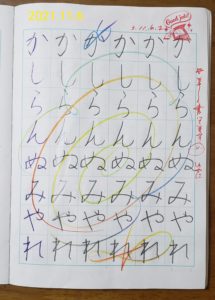 2021.11.6
かかかかかか
しししししし
らららららら
んんんんんん
ぬぬぬぬぬぬ
みみみみみみ
やややややや
れれれれれれ
Good job!